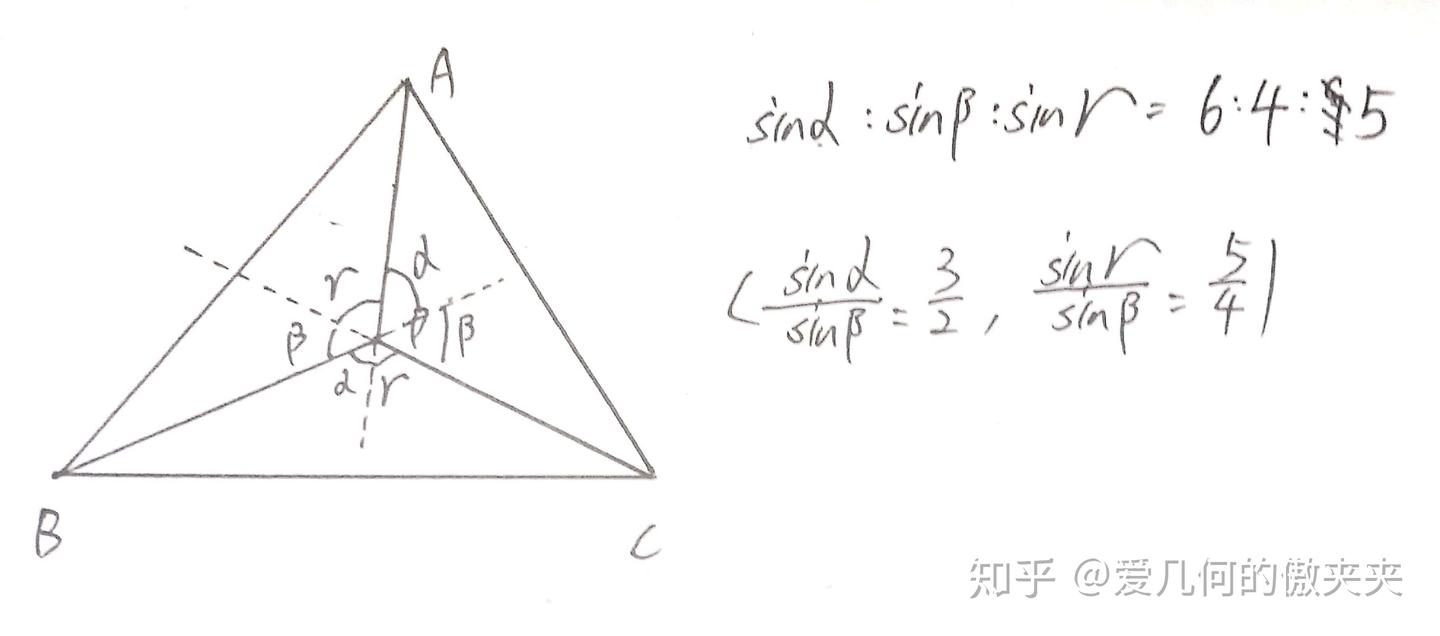 A
sinα : sinβ : sinγ = 6:4:5
γ α
( sinα/sinβ = 3/2 , sinγ/sinβ = 5/4 )
β β β
α γ
B C
知乎 @爱几何的傲夹夹